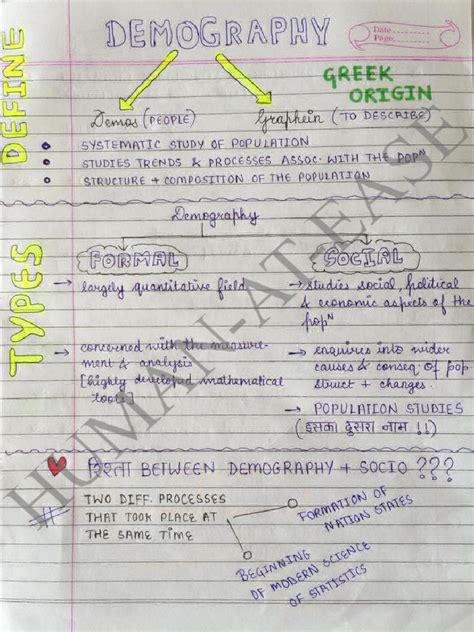 DEMOGRAPHY
Date
Page
DEFINE
GREEK
ORIGIN
Demos (PEOPLE) Graphein (TO DESCRIBE)
SYSTEMATIC STUDY OF POPULATION
STUDIES TRENDS & PROCESSES ASSOC. WITH THE POPN
STRUCTURE + COMPOSITION OF THE POPULATION
Demography
TYPES
FORMAL SOCIAL
→ largely quantitative field
→ studies social, political
& economic aspects of the
popN
→ concerned with the measure-
ment & analysis
[highly developed mathematical
tools]
→ enquires into wider
causes & conseq. of pop.
struct + changes.
→ POPULATION STUDIES
(इसका दुसरा नाम !!)
रिश्ता BETWEEN DEMOGRAPHY + SOCIO ???
# TWO DIFF. PROCESSES
THAT TOOK PLACE AT
THE SAME TIME
FORMATION OF
NATION STATES
BEGINNING
OF MODERN SCIENCE
OF STATISTICS
HUMAN-AT-EASE